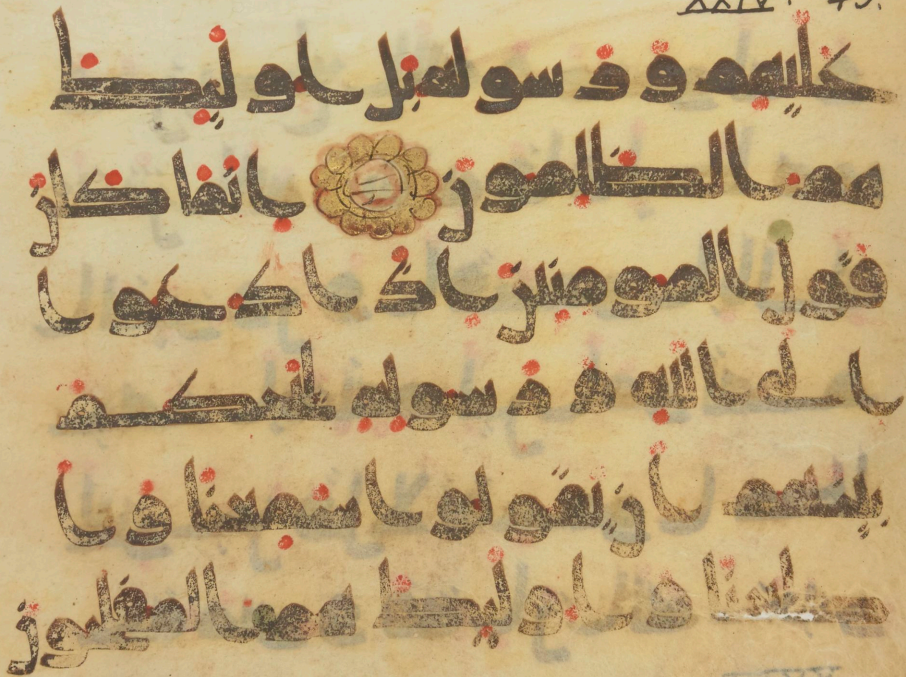 XXIV.
عليهم ورسوله بل اوليك
هم الظلمون انما كان
قول المومنين اذا دعوا
الى الله ورسوله ليحكم
بينهم ان يقولوا سمعنا وا
طعنا واوليك هم المفلحون